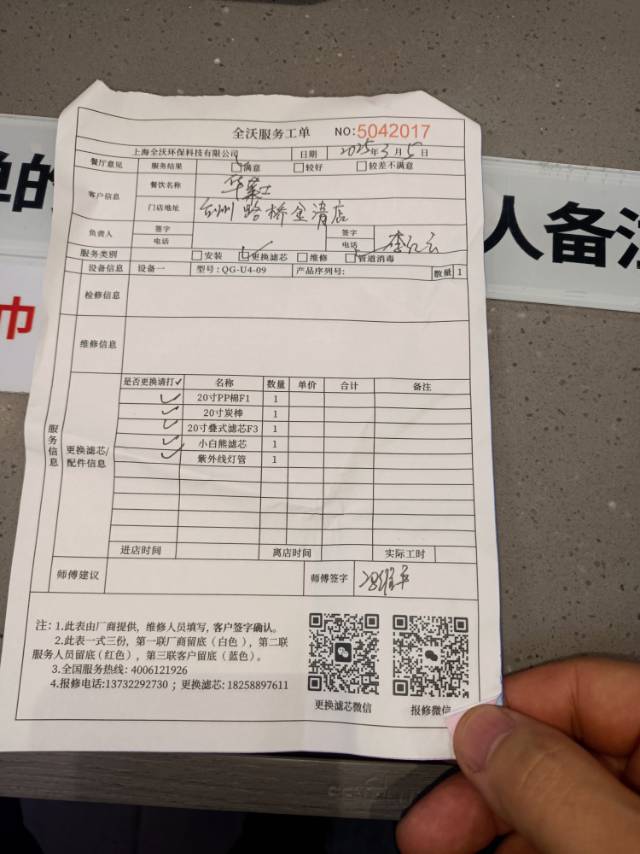 单的
巾
人备注
全沃服务工单 NO:5042017
上海全沃环保科技有限公司 日期 2025年3月5日
餐厅意见 服务结果 满意 较好 较差不满意
客户信息 餐饮名称 华莱士
门店地址 台州路桥金清店
负责人 签字 签字
电话 电话
服务类别 安装 更换滤芯 维修 管道消毒
设备信息 设备一 型号:QG-U4-09 产品序列号: 数量 1
检修信息
维修信息
服务信息
更换滤芯/配件信息
是否更换请打✓ 名称 数量 单价 合计 备注
✓ 20寸PP棉F1 1
✓ 20寸炭棒 1
✓ 20寸叠式滤芯F3 1
✓ 小白熊滤芯 1
✓ 紫外线灯管 1
进店时间 离店时间 实际工时
师傅建议 师傅签字
注:1.此表由厂商提供,维修人员填写,客户签字确认。
2.此表一式三份,第一联厂商留底(白色),第二联
服务人员留底(红色),第三联客户留底(蓝色)。
3.全国服务热线:4006121926
4.报修电话:13732292730;更换滤芯:18258897611
更换滤芯微信 报修微信